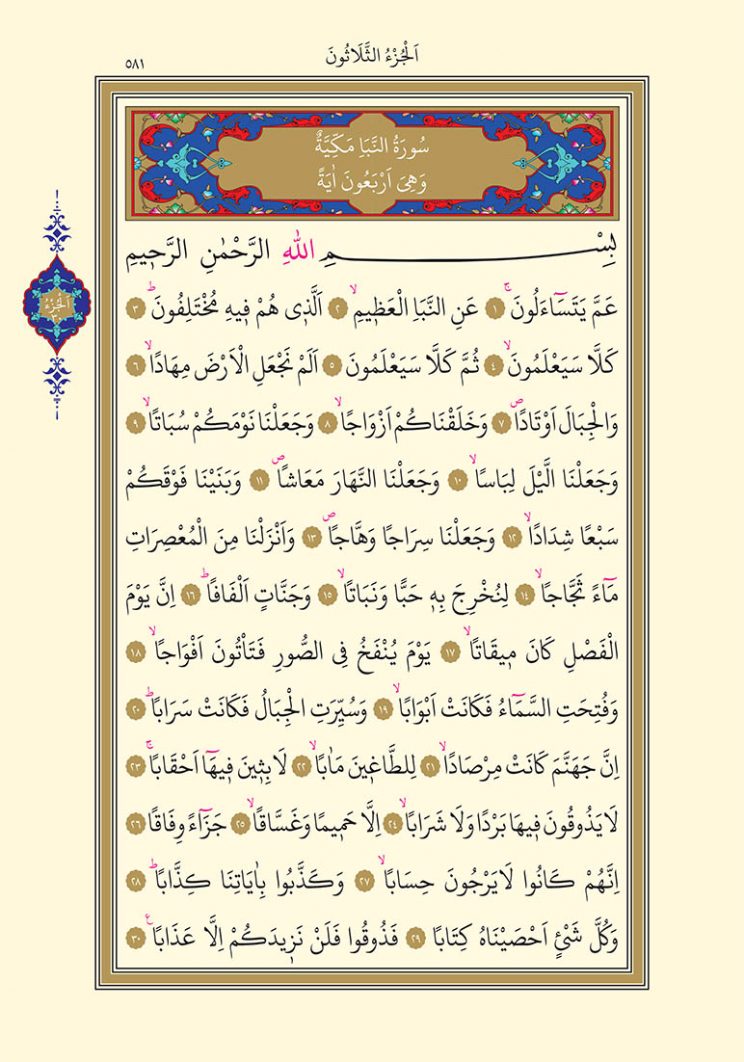 اَلْجُزْءُ الثَّلَاثُونَ
٥٨١
سُورَةُ النَّبَأِ مَكِّيَّةٌ
وَهِىَ اَرْبَعُونَ اٰيَةً
اَلْجُزْءُ ٣٠
بِسْمِ اللّٰهِ الرَّحْمٰنِ الرَّحٖيمِ
عَمَّ يَتَسَٓاءَلُونَۚ ١ عَنِ النَّبَأِ الْعَظٖيمِۙ ٢ اَلَّذٖى هُمْ فٖيهِ مُخْتَلِفُونَؕ ٣
كَلَّا سَيَعْلَمُونَۙ ٤ ثُمَّ كَلَّا سَيَعْلَمُونَ ٥ اَلَمْ نَجْعَلِ الْاَرْضَ مِهَادًاۙ ٦
وَالْجِبَالَ اَوْتَادًاۖ ٧ وَخَلَقْنَاكُمْ اَزْوَاجًاۙ ٨ وَجَعَلْنَا نَوْمَكُمْ سُبَاتًاۙ ٩
وَجَعَلْنَا الَّيْلَ لِبَاسًاۙ ١٠ وَجَعَلْنَا النَّهَارَ مَعَاشًاۖ ١١ وَبَنَيْنَا فَوْقَكُمْ
سَبْعًا شِدَادًاۙ ١٢ وَجَعَلْنَا سِرَاجًا وَهَّاجًاۖ ١٣ وَاَنْزَلْنَا مِنَ الْمُعْصِرَاتِ
مَٓاءً ثَجَّاجًاۙ ١٤ لِنُخْرِجَ بِهٖ حَبًّا وَنَبَاتًاۙ ١٥ وَجَنَّاتٍ اَلْفَافًاؕ ١٦ اِنَّ يَوْمَ
الْفَصْلِ كَانَ مٖيقَاتًاۙ ١٧ يَوْمَ يُنْفَخُ فِى الصُّورِ فَتَاْتُونَ اَفْوَاجًاۙ ١٨
وَفُتِحَتِ السَّمَٓاءُ فَكَانَتْ اَبْوَابًاۙ ١٩ وَسُيِّرَتِ الْجِبَالُ فَكَانَتْ سَرَابًاؕ ٢٠
اِنَّ جَهَنَّمَ كَانَتْ مِرْصَادًاۙ ٢١ لِلطَّاغٖينَ مَاٰبًاۙ ٢٢ لَابِثٖينَ فٖيهَٓا اَحْقَابًاۚ ٢٣
لَا يَذُوقُونَ فٖيهَا بَرْدًا وَلَا شَرَابًاۙ ٢٤ اِلَّا حَمٖيمًا وَغَسَّاقًاۙ ٢٥ جَزَٓاءً وِفَاقًا ٢٦
اِنَّهُمْ كَانُوا لَا يَرْجُونَ حِسَابًاۙ ٢٧ وَكَذَّبُوا بِاٰيَاتِنَا كِذَّابًاؕ ٢٨
وَكُلَّ شَیْءٍ اَحْصَيْنَاهُ كِتَابًا ٢٩ فَذُوقُوا فَلَنْ نَزٖيدَكُمْ اِلَّا عَذَابًاع ٣٠